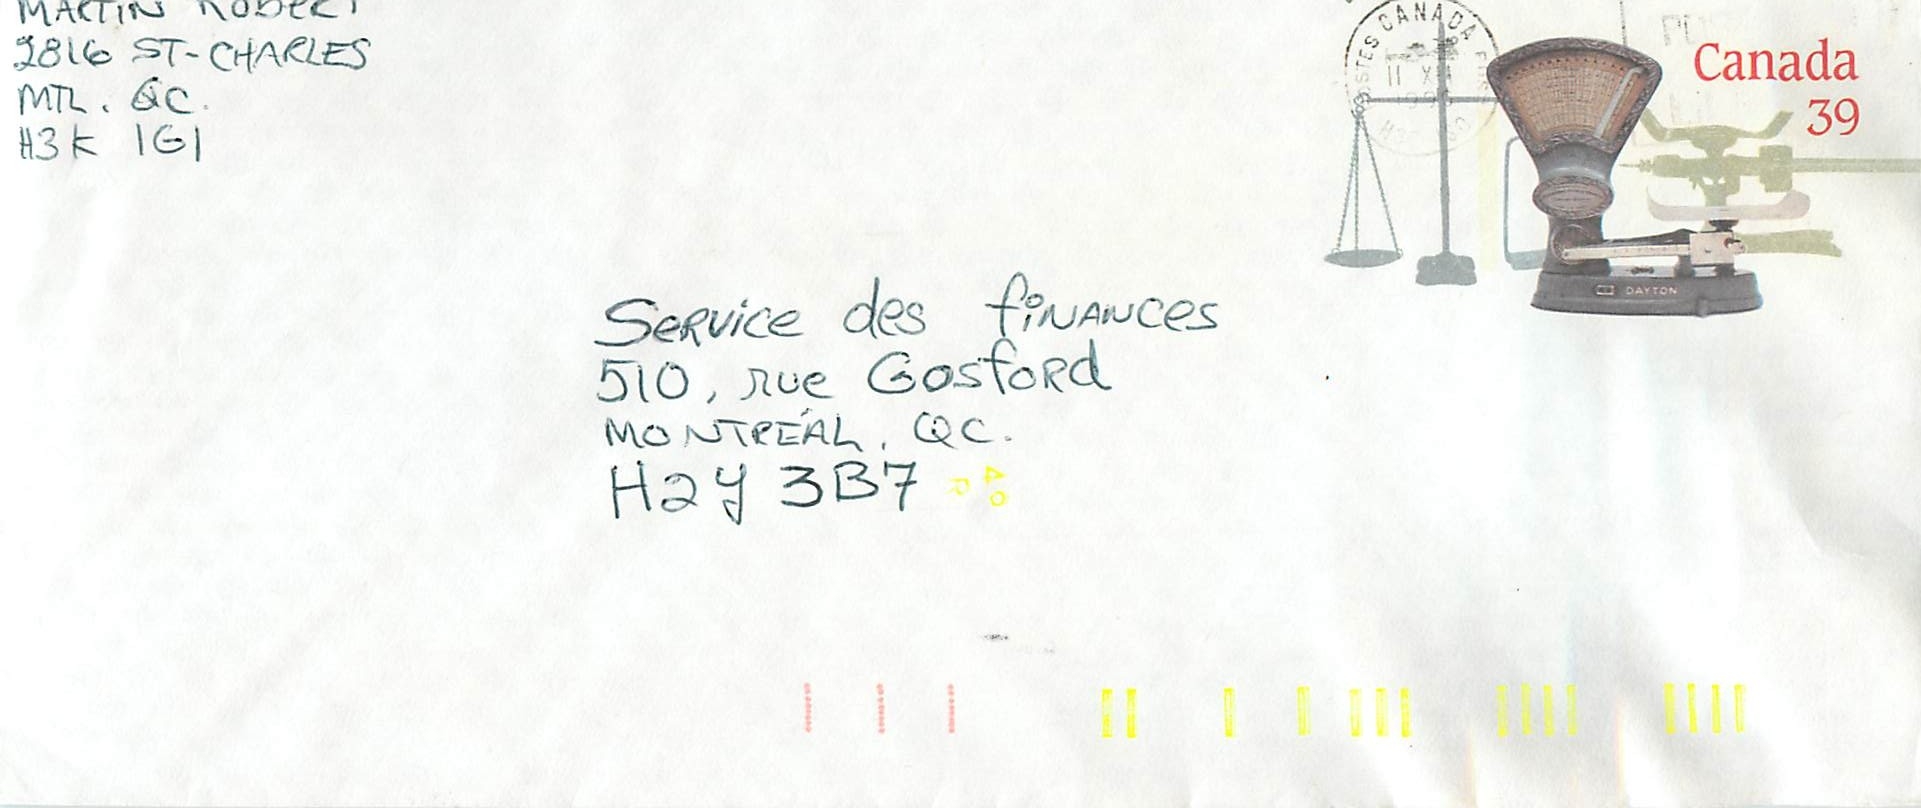 MARTIN ROBERT
2816 ST-CHARLES
MTL. QC.
H3K 1G1
POSTES CANADA
11 XII
Canada
39
DAYTON
Service des finances
510, rue Gosford
MONTRÉAL, QC.
H2Y 3B7